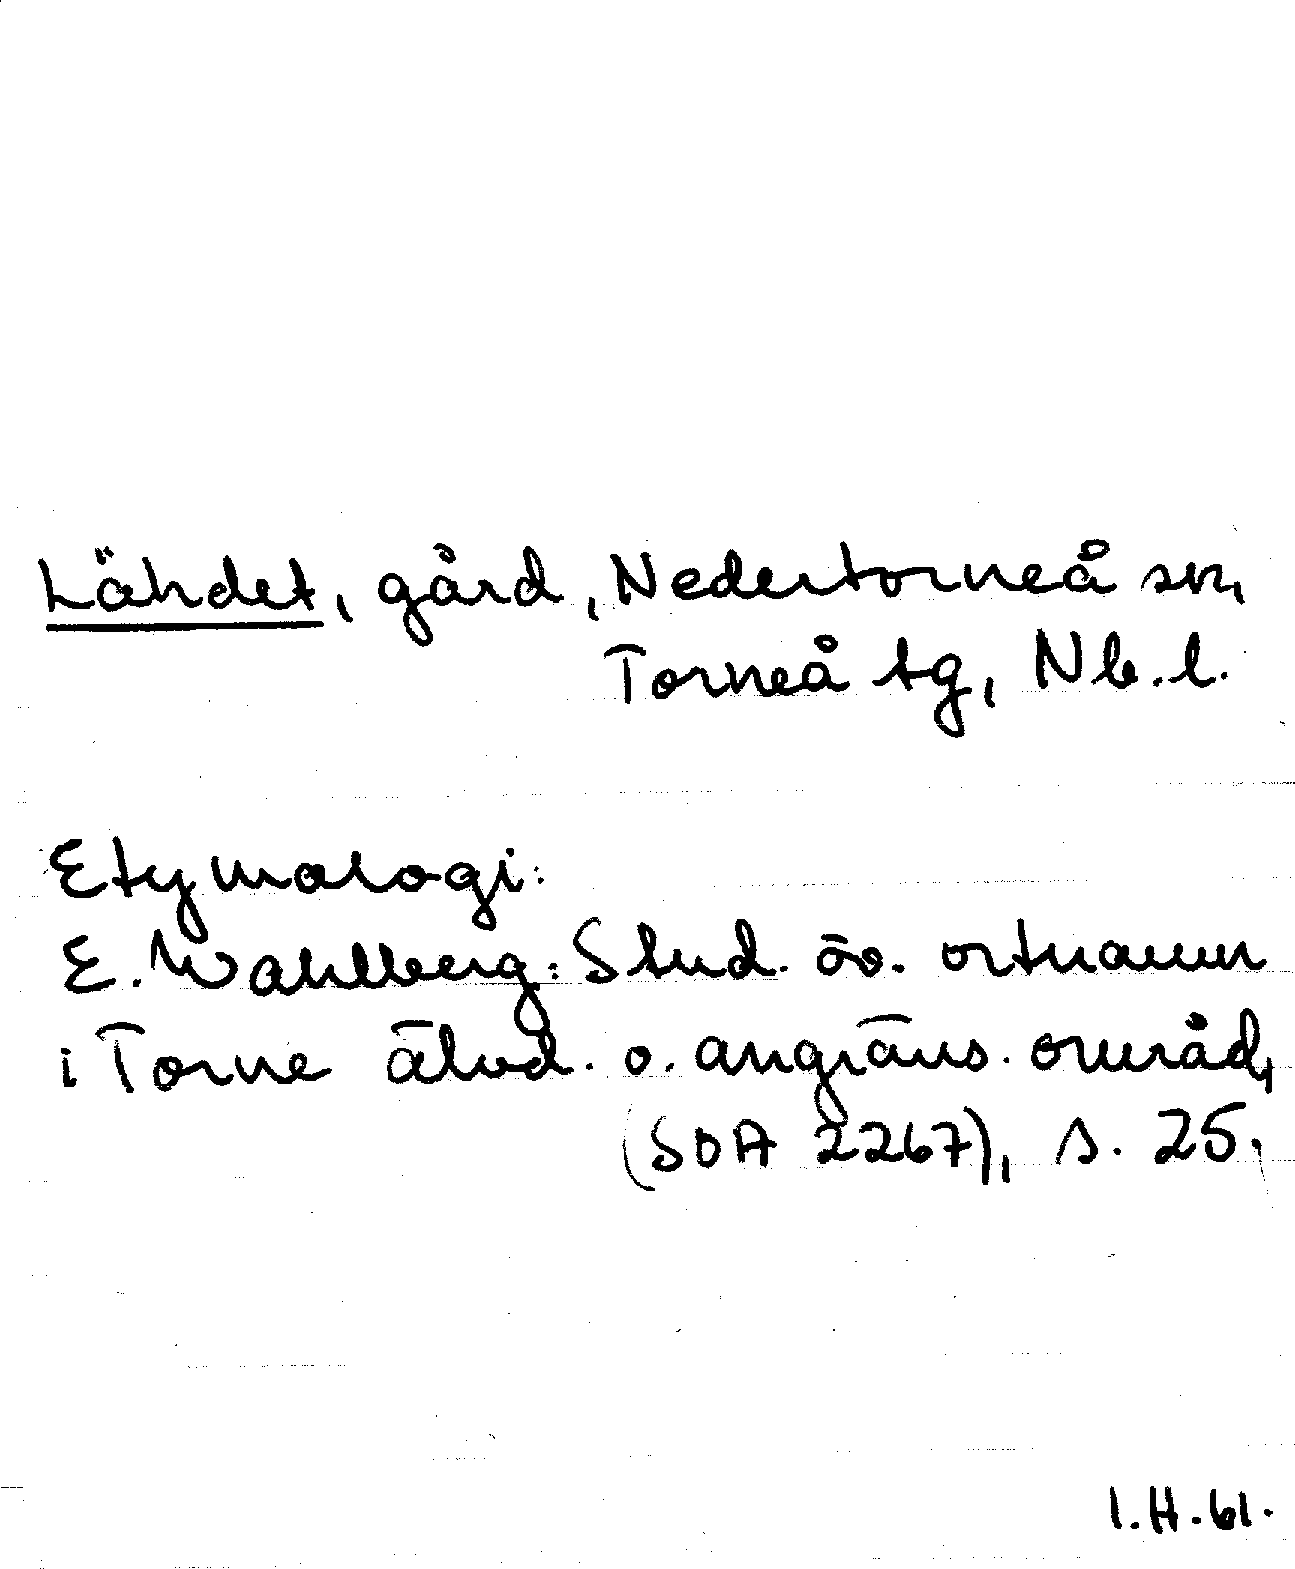 Lähdet, gård, Nedertorneå sn,
Torneå tg, Nb.l.
Etymologi:
E. Wahlberg: Stud. öv. ortnamn
i Torne älvd. o. angräns. områd,
(SOA 2267), s. 25.
I.H.61.